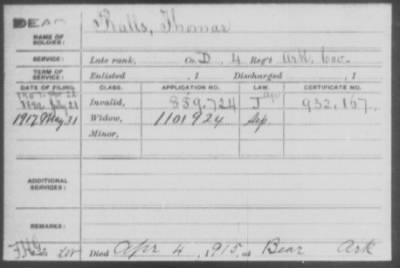 DEAD
Ralls, Thomas
NAME OF SOLDIER:
SERVICE: Late rank, Co. D, 4 Reg't Ark. Cav.
TERM OF SERVICE: Enlisted , 1 Discharged , 1
DATE OF FILING. CLASS. APPLICATION NO. LAW. CERTIFICATE NO.
1892 July 21 Invalid, 859.724 J 932,167.
1917 May 31 Widow, 1101924 Sep.
Minor,
ADDITIONAL SERVICES:
REMARKS:
Died Apr 4, 1915, at Bear Ark